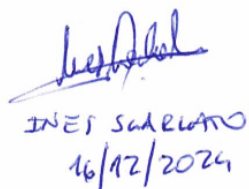 INES SCARLATO
16/12/2024